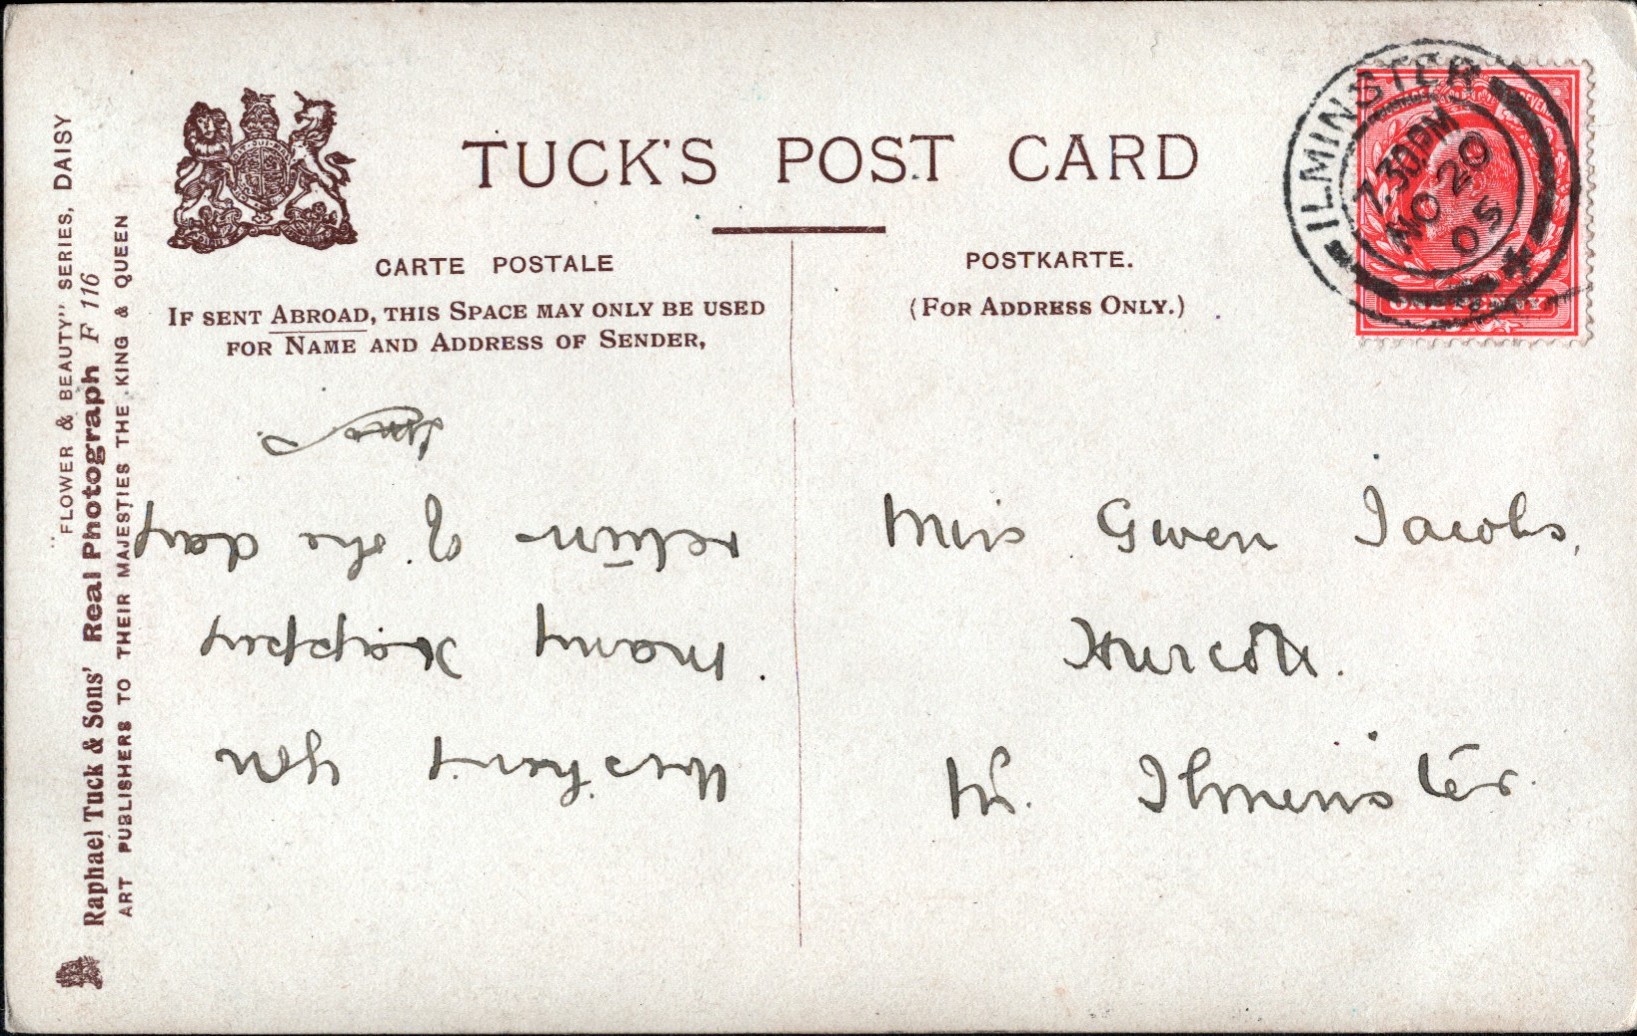 TUCK'S POST CARD
CARTE POSTALE
IF SENT ABROAD, THIS SPACE MAY ONLY BE USED
FOR NAME AND ADDRESS OF SENDER,
POSTKARTE.
(FOR ADDRESS ONLY.)
ILMINSTER
7.30PM
NO 20
05
ONE PENNY
Miss Gwen Jacobs,
Hurcott.
Nr. Ilminster.
Wishing you
many Happy
return of the day
"FLOWER & BEAUTY" SERIES, DAISY
Raphael Tuck & Sons' Real Photograph F 116
ART PUBLISHERS TO THEIR MAJESTIES THE KING & QUEEN